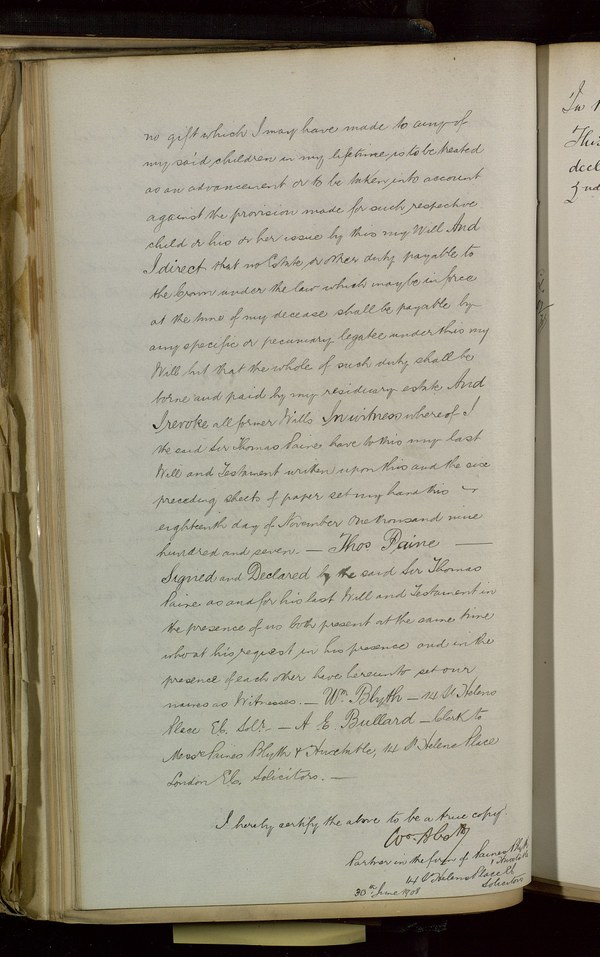 no gift which I may have made to any of
my said children in my lifetime is to be treated
as an advancement or to be taken into account
against the provision made for such respective
child or his or her issue by this my Will And
I direct that no Estate or other duty payable to
the Crown under the law which may be in force
at the time of my decease shall be payable by
any specific or pecuniary legatee under this my
Will but that the whole of such duty shall be
borne and paid by my residuary estate And
I revoke all former Wills In witness whereof I
the said Sir Thomas Paine have to this my last
Will and Testament written upon this and the six
preceding sheets of paper set my hand this
eighteenth day of November One thousand nine
hundred and seven. — Thos Paine —
Signed and Declared by the said Sir Thomas
Paine as and for his last Will and Testament in
the presence of us both present at the same time
who at his request in his presence and in the
presence of each other have hereunto set our
names as Witnesses. — Wm. Blyth — 14 St Helens
Place EC. Solr. — A E. Bullard — Clerk to
Messrs Paines Blyth & Huxtable, 14 St Helens Place
London EC. Solicitors. —
I hereby certify the above to be a true copy.
Partner in the firm of Paines Blyth
& Huxtable
14 St Helens Place
Solicitors
30th June 1908
In
This
decl
2nd